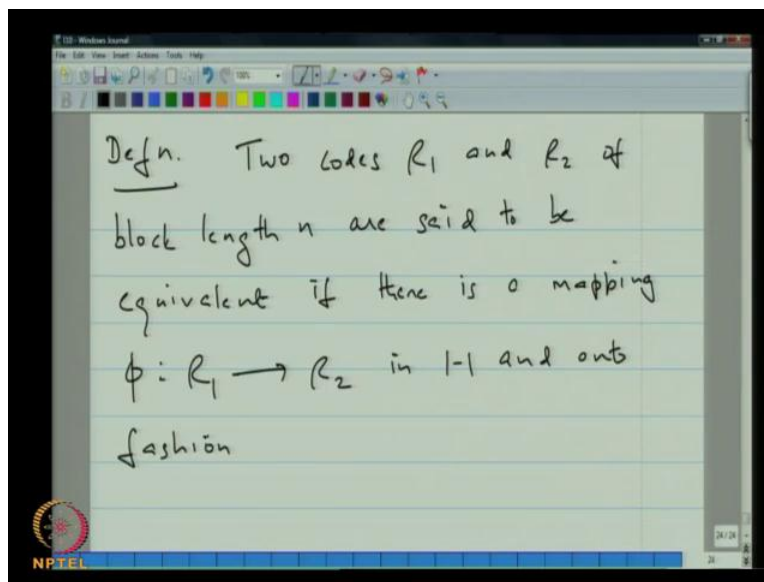 110 - Windows Journal
File Edit View Insert Actions Tools Help
Defn. Two codes C1 and C2 of
block length n are said to be
equivalent if there is a mapping
ϕ : C1 → C2 in 1-1 and onto
fashion
24 / 24
24
NPTEL